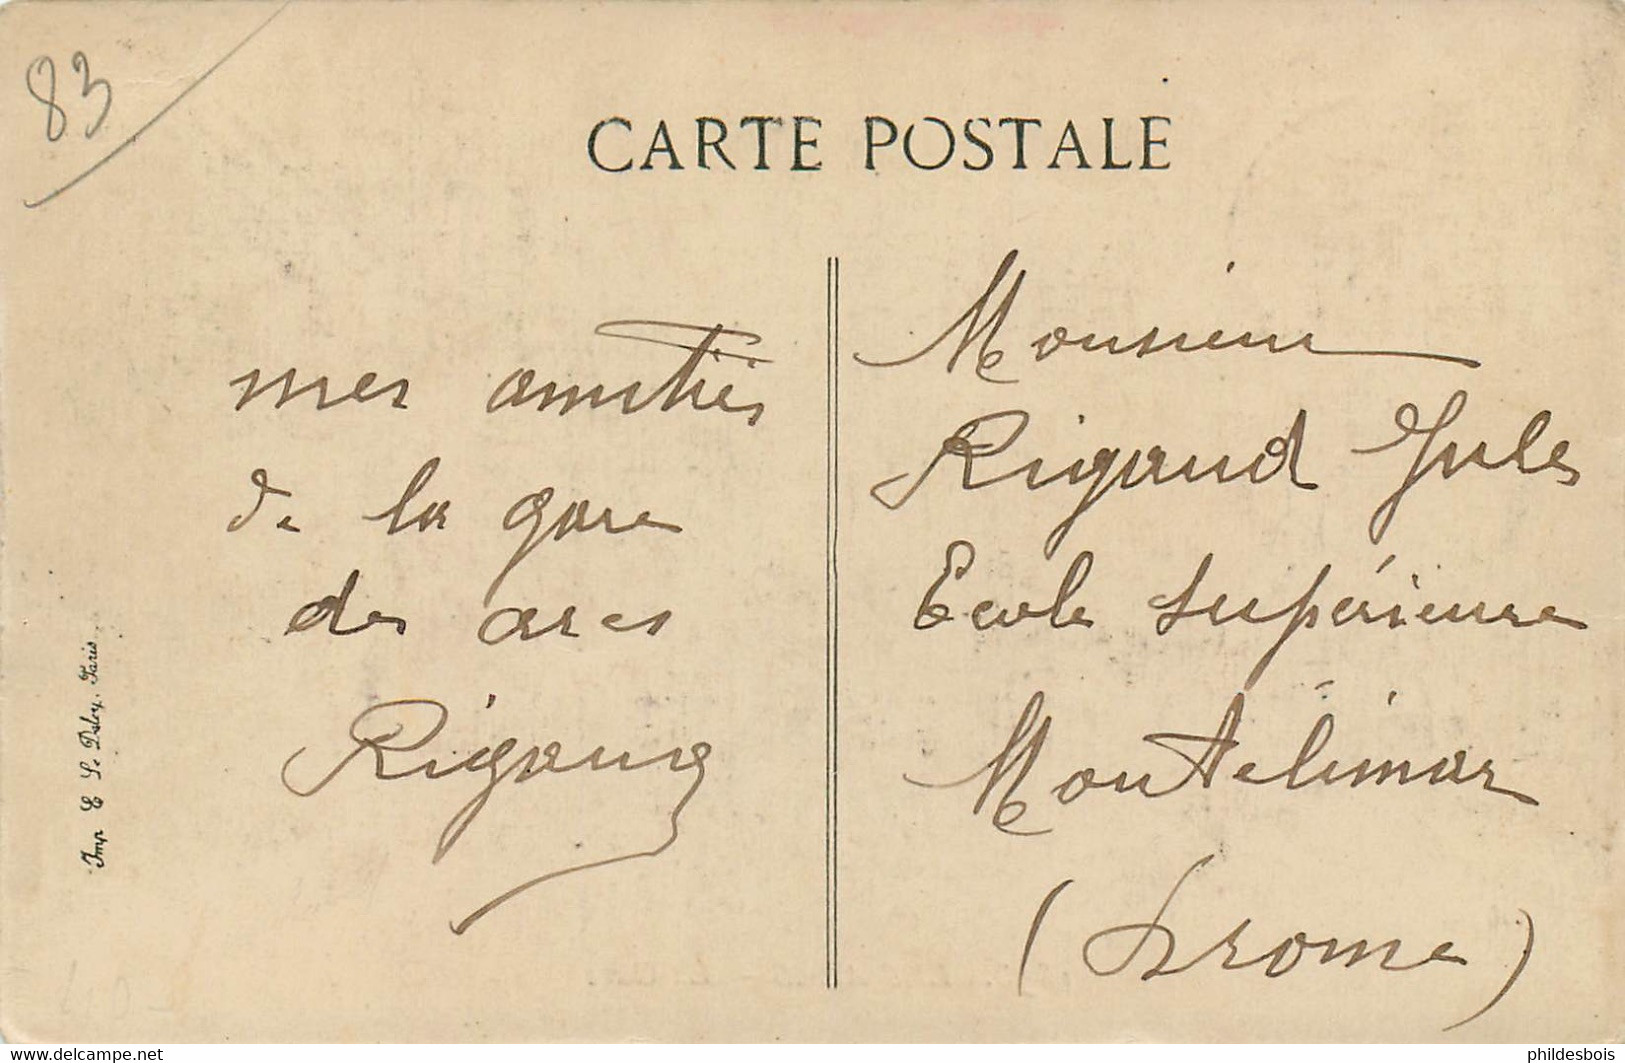 83
CARTE POSTALE
mes amitiés
de la gare
des arcs
Rigaud
Monsieur
Rigaud Jules
Ecole Supérieure
Montelimar
(Drome)
Imp. E. Le Deley, Paris
www.delcampe.net
phildesbois